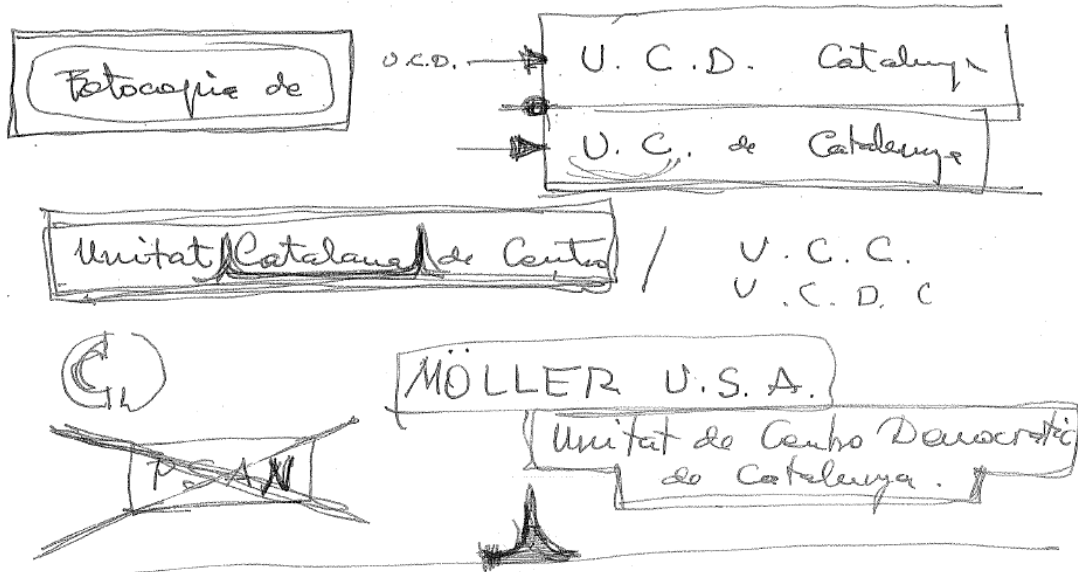 Fotocopia de
U.C.D.
U. C. D. Catalunya
U. C. de Catalunya
Unitat Catalana de Centro /
U. C. C.
U. C. D. C
MÖLLER U.S.A.
Unitat de Centro Democratic
de Catalunya.
PSAN